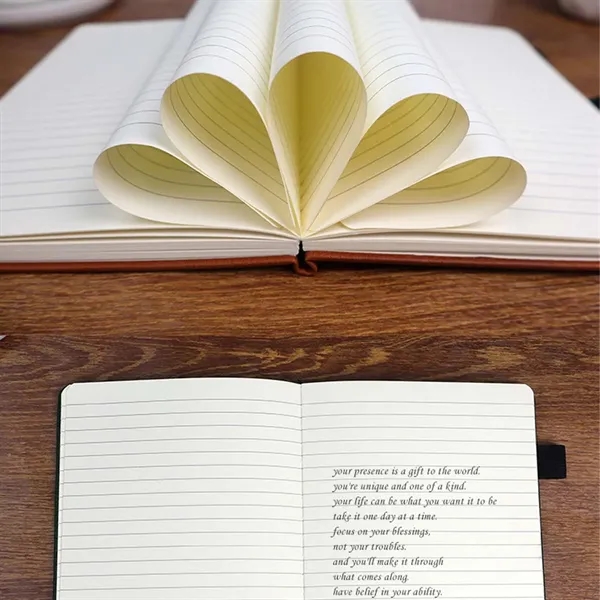 your presence is a gift to the world.
you're unique and one of a kind.
your life can be what you want it to be
take it one day at a time.
focus on your blessings,
not your troubles.
and you'll make it through
what comes along.
have belief in your ability.